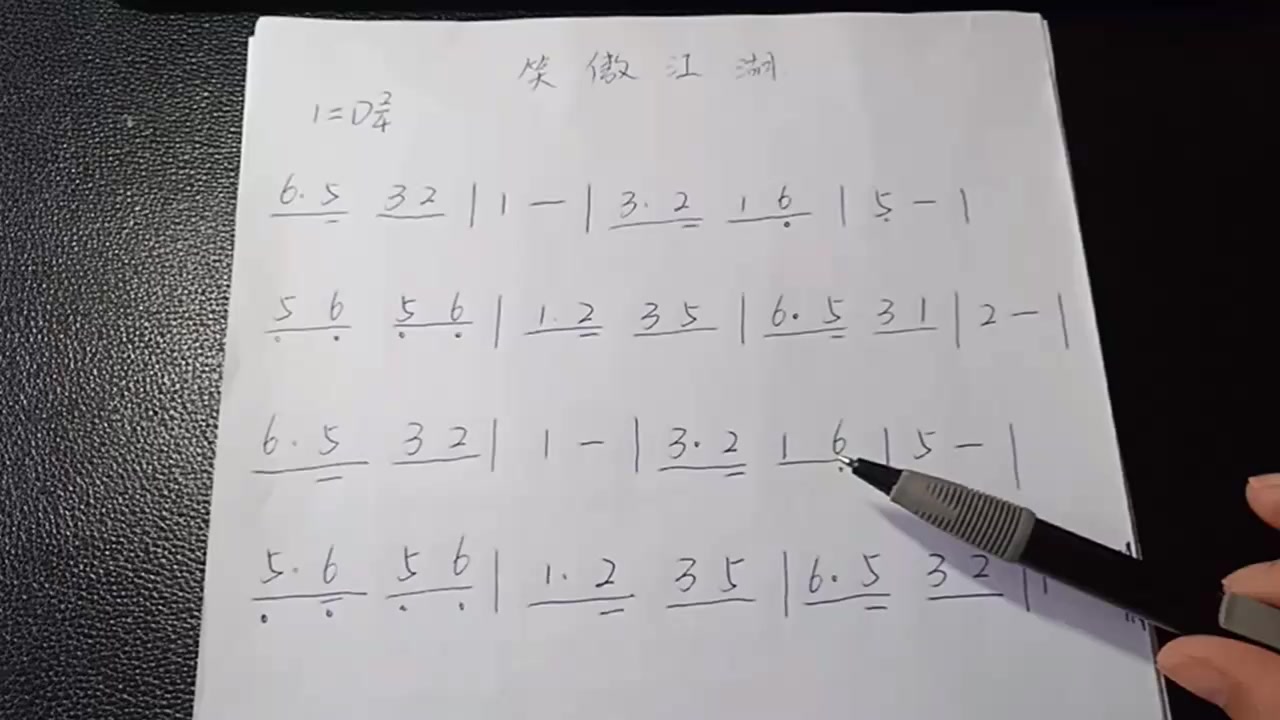 笑傲江湖
1=D 2/4
6. 5 3 2 | 1 - | 3. 2 1 6 | 5 - |
5 6 5 6 | 1. 2 3 5 | 6. 5 3 1 | 2 - |
6. 5 3 2 | 1 - | 3. 2 1 6 | 5 - |
5. 6 5 6 | 1. 2 3 5 | 6. 5 3 2 | 1